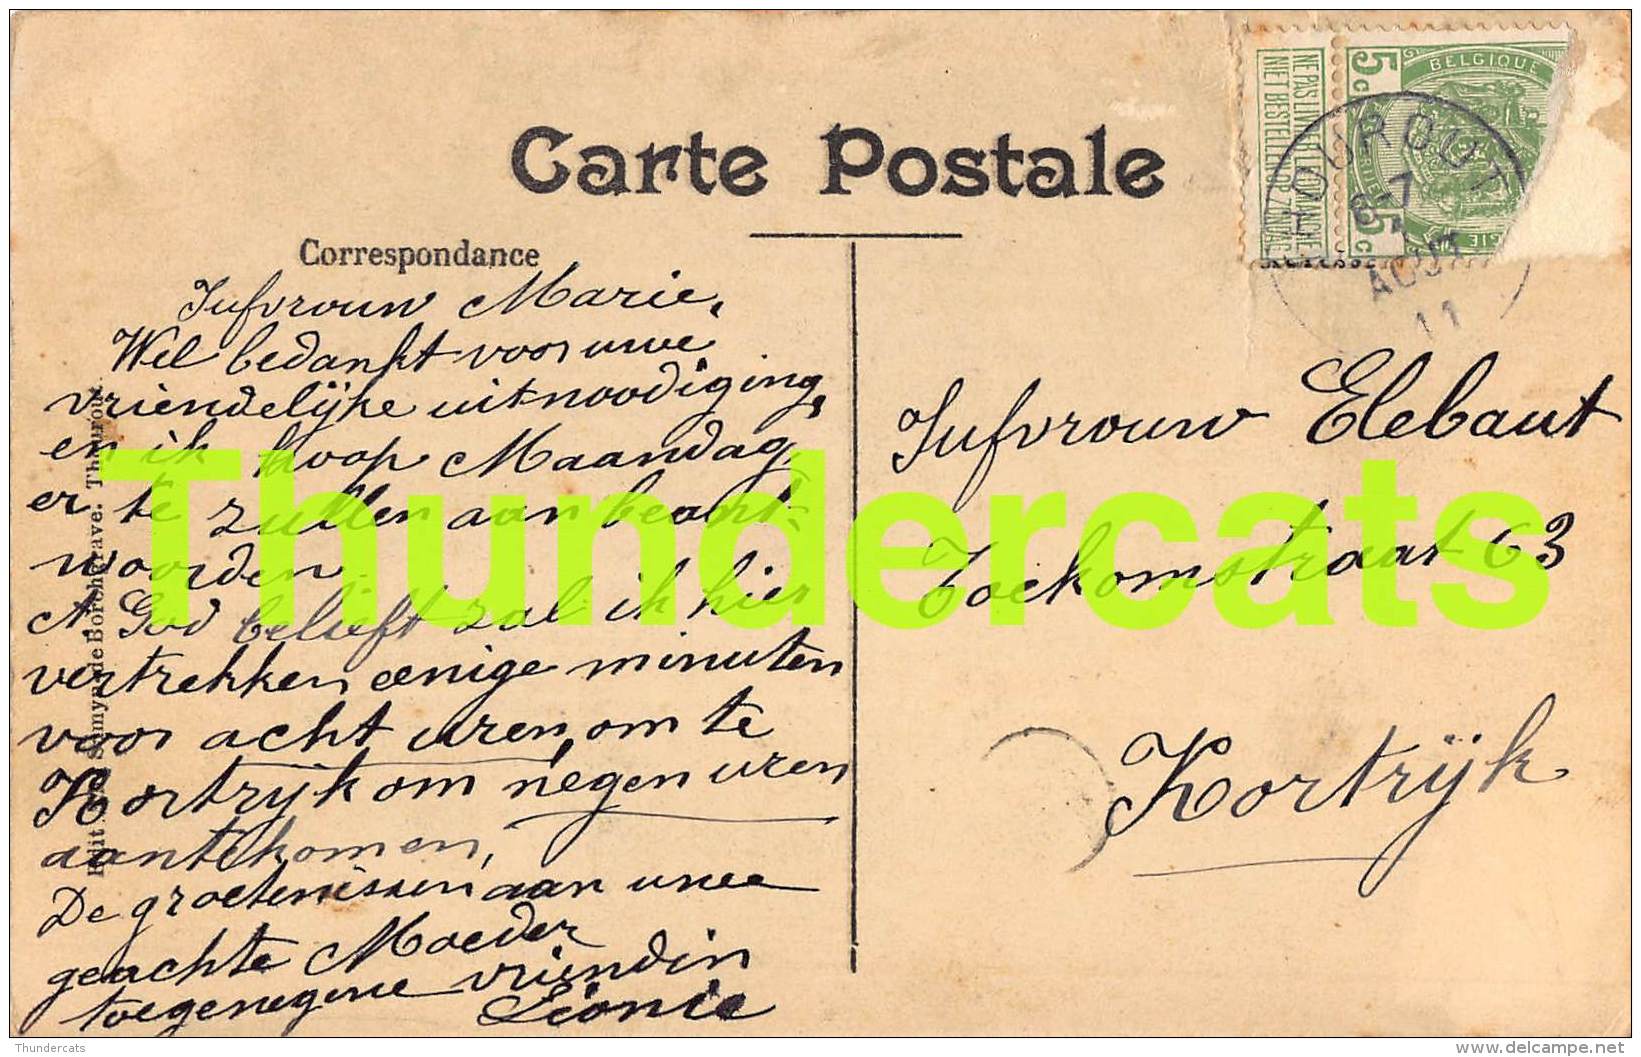 Carte Postale
Correspondance
Jufvrouw Marie,
Wel bedankt voor uwe
vriendelijke uitnoodiging,
en ik hoop Maandag
er te zullen aan beant-
woorden.
A God belieft zal ik hier
vertrekken eenige minuten
voor acht uren, om te
Kortrijk om negen uren
aantekomen,
De groetenissen aan uwe
geachte Moeder
toegenegene vriendin
Léonie
Jufvrouw Elebaut
Toekomstraat 63
Kortrijk
BELGIQUE
5c
5c
NIET BESTELLEN OP ZONDAG
THOUROUT
8-7
AOUT
11
de Borchgrave. Thourout.
Thundercats
Thundercats
delcampe.net